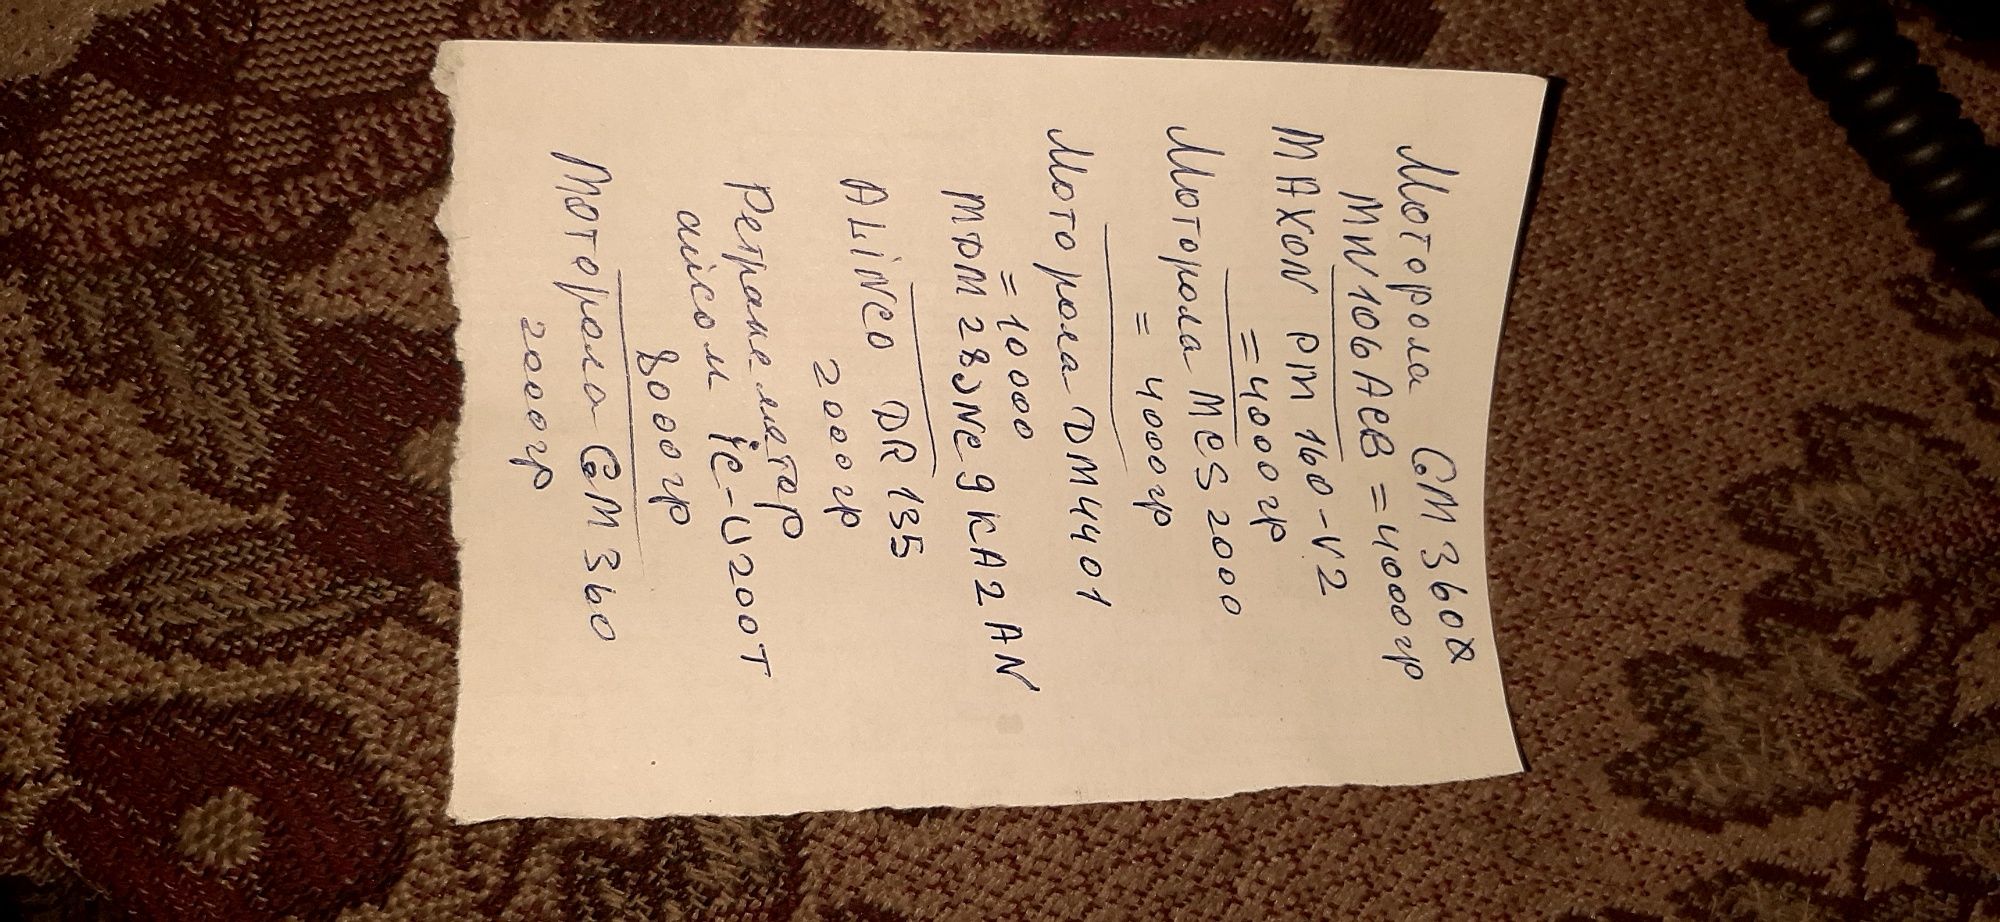 Моторола GM 360
MW106ACB = 4000гр
MAXON PM 160-V2
= 4000гр
Моторола MCS 2000
= 4000гр
Моторола DM4401
= 10000
MDM28JNC9KA2AN
ALiNCO DR 135
2000гр
Ретранслятор
айком iC-U200T
8000гр
Моторола GM 360
2000гр